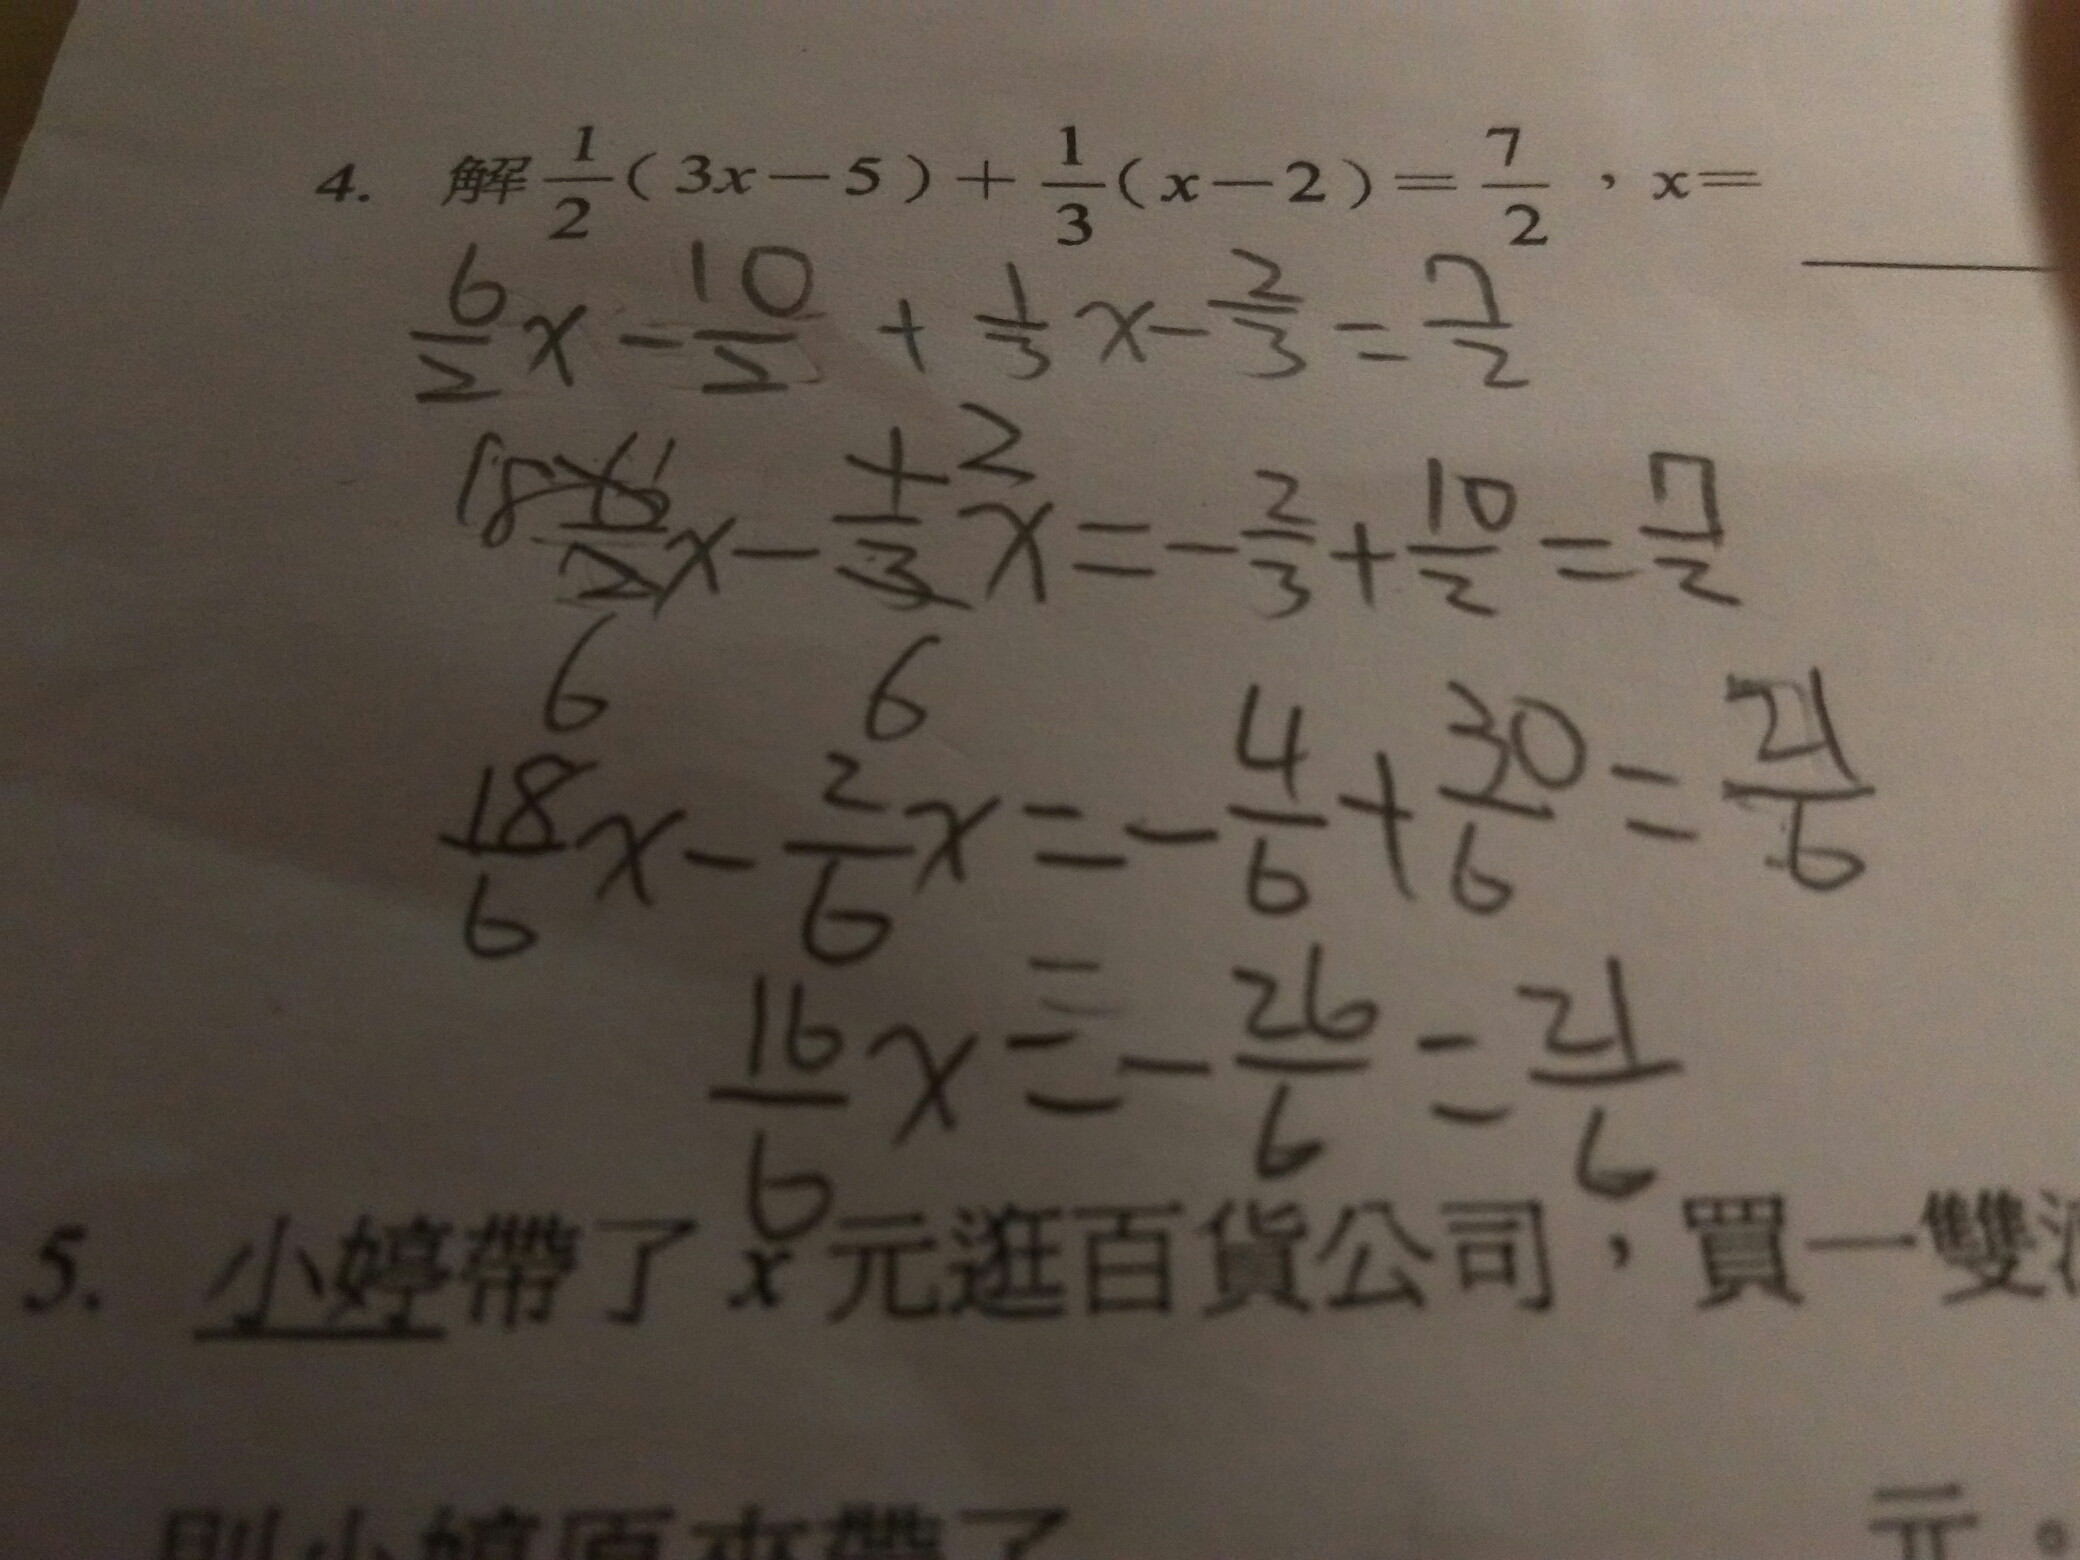 4. 解 1/2 (3x－5)＋1/3 (x－2)＝7/2，x＝
6/2 x - 10/2 + 1/3 x - 2/3 = 7/2
18 6 +2
6/2 x - 1/3 x = - 2/3 + 10/2 = 7/2
6 6
18/6 x - 2/6 x = - 4/6 + 30/6 = 21/6
16/6 x = - 26/6 = 21/6
5. 小婷帶了 x 元逛百貨公司，買一雙
則小婷原來帶了 元。